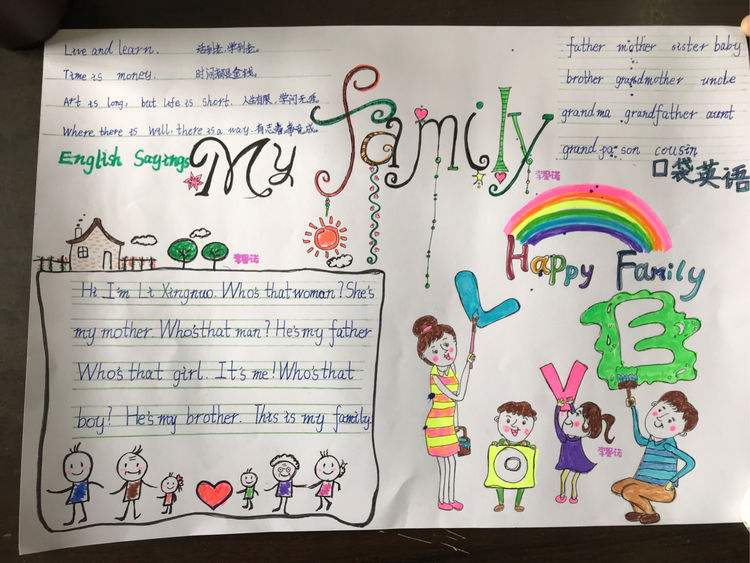 Live and learn. 活到老,学到老。
Time is money. 时间就是金钱。
Art is long, but life is short. 人生有限,学问无涯。
Where there is will, there is a way. 有志者,事竟成。
English Sayings
My family
father mother sister baby
brother grandmother uncle
grandma grandfather aunt
grandpa son cousin
口袋英语
Happy Family
Hi I'm Li Xingnuo. Who's that woman? She's
my mother. Who's that man? He's my father
Who's that girl. It's me! Who's that
boy? He's my brother. This is my family.
L O V E